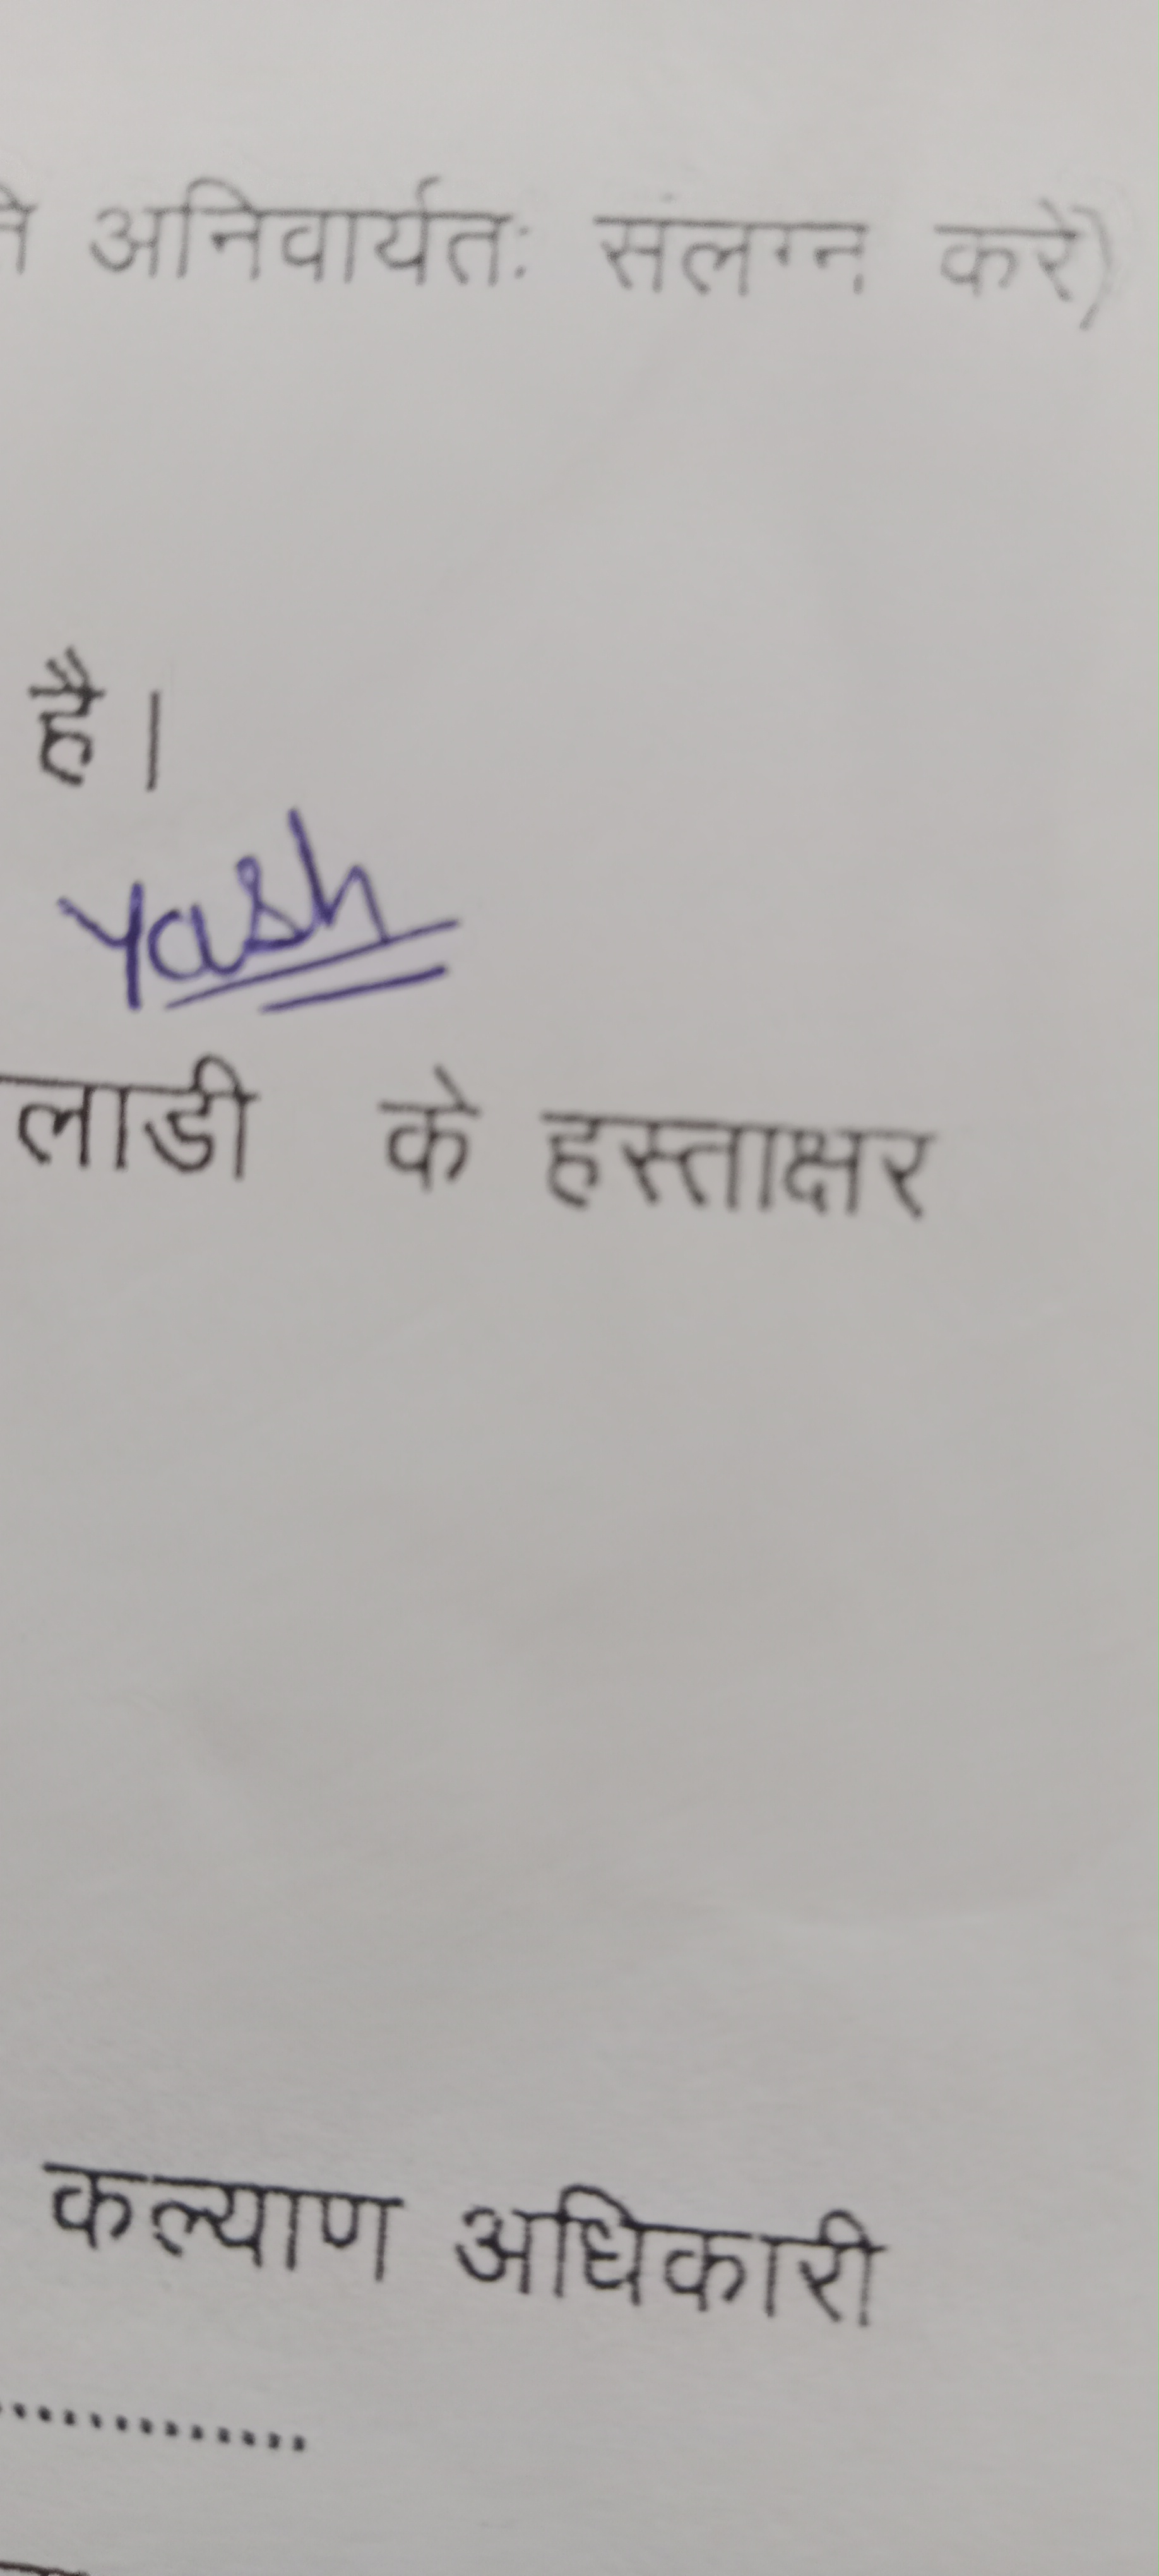 अनिवार्यतः संलग्न करें)
है।
Yash
लाडी के हस्ताक्षर
कल्याण अधिकारी
.............